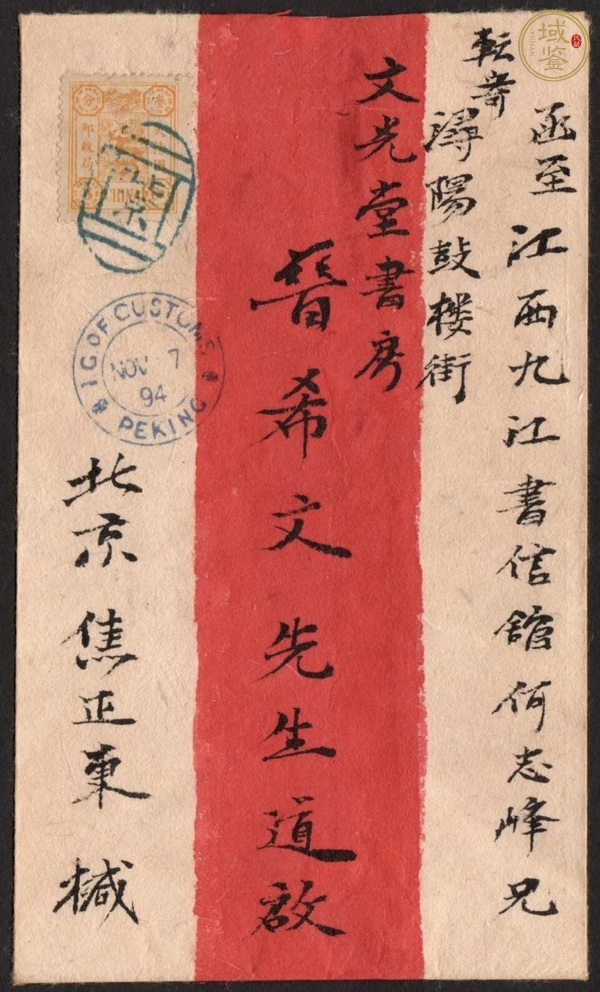 函至江西九江書信舘何志峰兄
転寄
潯陽鼓楼街
文光堂書房
晉希文先生道啟
北京焦正東椷
I.G. OF CUSTOMS
NOV 7
94
PEKING
郵政局
域鉴